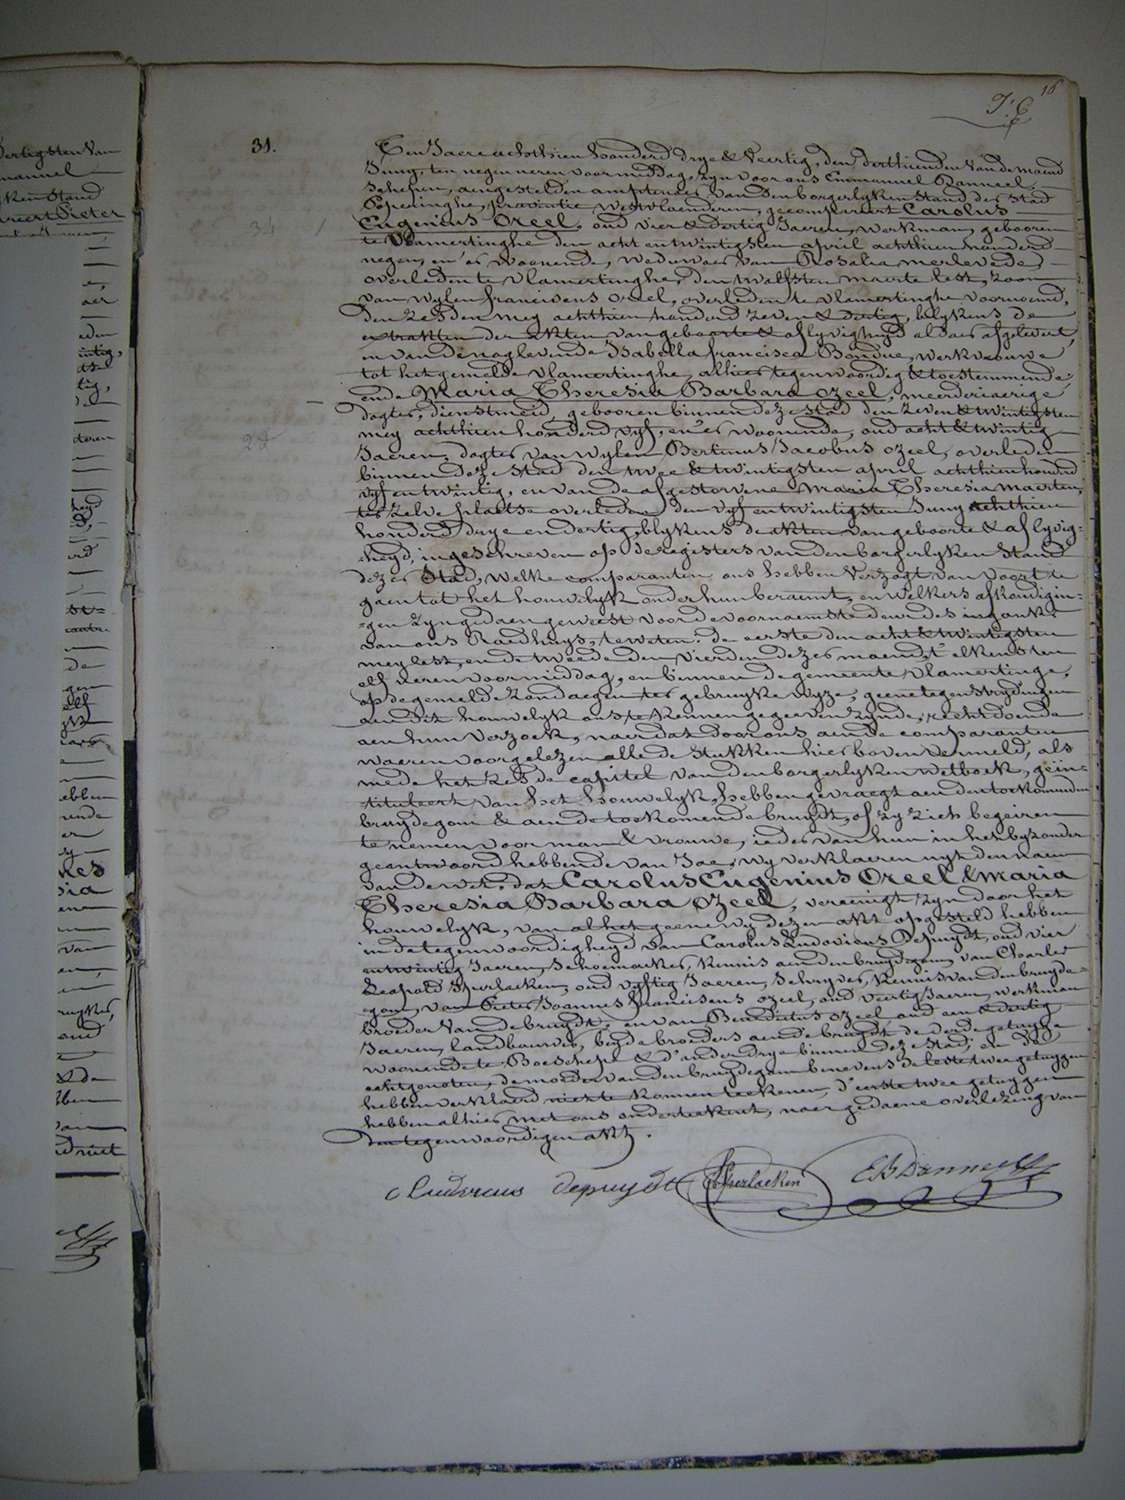 16
31.
Den Jaere achthien honderd drye & veertig, den derthienden van de maend
Juny, ten negen uren voormiddag, zyn voor ons Emmanuel Banneel,
Schepen, aengestelden amptenaer van den borgerlyken Stand der Stad
Poperinghe, provintie Westvlaenderen, gecompareert Carolus
Eugenius Oreel, oud vier & dertig Jaeren, werkman, gebooren
te Vlamertinghe den acht entwintigsten april achthien honderd
negen, en er woonende, weduwaer van Rosalia Merlevede,
overleden te Vlamertinghe, den twalfsten maerte lest, zoon
van wylen franciscus Oreel, overleden te Vlamertinghe voornoemd,
den zesden mey achthien honderd zeven & dertig, blykens de
extrakten der akten van geboorte & aflyvigheyd aldaer afgelevert,
en van de naglevende Isabella francisca Bondue, werkvrouwe
tot het gemelde Vlamertinghe, alhier tegenwoordig & toestemmende;
ende Maria Theresia Barbara Ozeel, meerderjaerige
dogter, dienstmeid, gebooren binnen deze Stad den zeven & twintigsten
mey achthien honderd vyf, en er woonende, oud acht & twintig
Jaeren, dogter van wylen Bertinus Jacobus Ozeel, overleden
binnen deze Stad den twee & twintigsten april achthien honderd
vyf entwintig, en van de afgestorvene Maria Theresia Maerten,
ter zelve plaetse overleden den vyf entwintigsten Juny achthien
honderd drye en dertig, blykens de akten van geboorte & aflyvig-
heyd, ingeschreven op de registers van den borgerlyken Stand
dezer Stad, welke comparanten ons hebben verzogt van voort te
gaen tot het houwelyk onder hun beraemt, en welkers afkondigin-
gen zyn gedaen geweest voor de voornaemste deur des ingank
van ons Raedhuys, te weten: de eerste den acht & twintigsten
mey lest, en de tweede den vierden dezer maend, telkens ten
elf uren voormiddag, en binnen de gemeente Vlamertinge,
op de gemelde zondaegen ter gebruyke wyze; geene tegenstrydingen
aen dit houwelyk ons te kennen gegeeven zynde, recht doende
aen hun verzoek, naer dat door ons aen de comparanten
waeren voorgelezen alle de Stukken hier boven vermeld, als
mede het zesde capitel van den borgerlyken wetboek, geïn-
tituleert van het houwelyk, hebben gevraegt aen den toekomenden
bruydegom & aen de toekomende bruydt, of zy zich begeiren
te nemen voor man & vrouwe, ieder van hun in het byzonder
geantwoord hebbende van Jae, wy verklaeren uyt den naem
van de wet, dat Carolus Eugenius Oreel & Maria
Theresia Barbara Ozeel, vereenigt zyn door het
houwelyk, van al het geene wy dezen akt opgesteld hebben
in de tegenwoordigheyd van Carolus Ludovicus Depuydt, oud vier
entwintig Jaeren, Schoemaeker, kennis aen den bruydegom, van Charles
Leopold Sperlaeken, oud vyftig Jaeren, Schryver, kennis van den bruyde-
gom, van Pieter Joannes franciscus Ozeel, oud veertig Jaeren, werkman
broeder van de bruydt, en van Benedictus Ozeel oud een & dertig
Jaeren, landbouwer, beyde broeders aen de bruydt, de derde getuyge
woonende te Boeschepe & d'andere drye binnen deze Stad; en de
echtgenoten, de moeder van den bruydegom benevens de leste twee getuygen
hebben verklaerd niet te konnen teekenen, d'eerste twee getuygen
hebben alhier met ons onderteekent, naer gedaene overlezing van
den tegenwoordigen akt.
c Ludovicus depuydt Sperlaeken E B Banneel